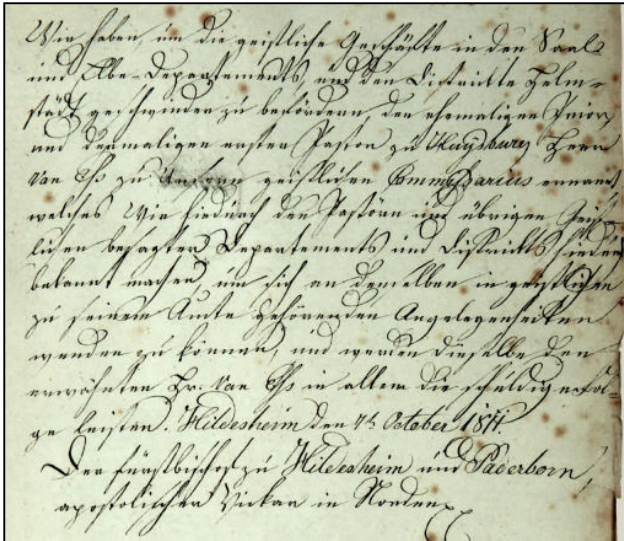 Wir haben, um die geistliche Geschäfte in den Saal-
und Elbe-Departements, und den Districkte Helm-
städt geschwinder zu befördern, den ehemaligen Prior,
und dermaligen ersten Pastor zu Huysburg Herrn
van Ess zu Unserm geistlichen Commissarius ernannt,
welches Wir hiedurch den Pastörn und übrigen Geist-
lichen besagter Departements und Districkts hiedurch
bekannt machen, um sich an denselben in geistlichen
zu seinem Amte gehörenden Angelegenheiten
wenden zu können, und werden dieselbe dem
erwähnten Hr. van Ess in allem die schuldige Fol-
ge leisten. Hildesheim den 4t. October 1811.
Der Fürstbischof zu Hildesheim und Paderborn,
apostolischer Vickar in Norden